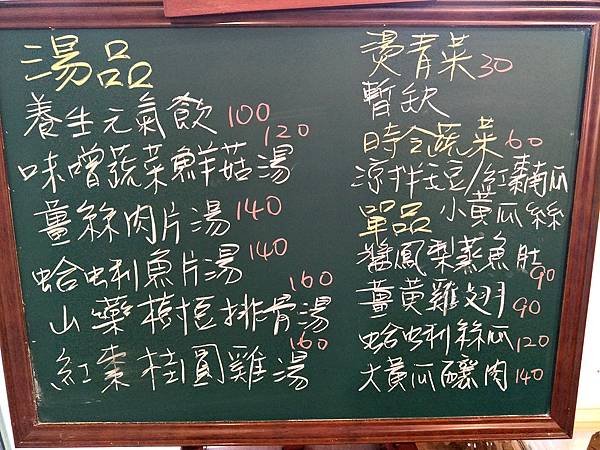 湯品
養生元氣飲100
味噌蔬菜鮮菇湯120
薑絲肉片湯140
蛤蜊魚片湯140
山藥樹豆排骨湯160
紅棗桂圓雞湯160
燙青菜30
暫缺
時令蔬菜60
涼拌毛豆/紅棗南瓜
小黃瓜絲
單品
醬鳳梨蒸魚肚90
薑黃雞翅90
蛤蜊絲瓜120
大黃瓜釀肉140